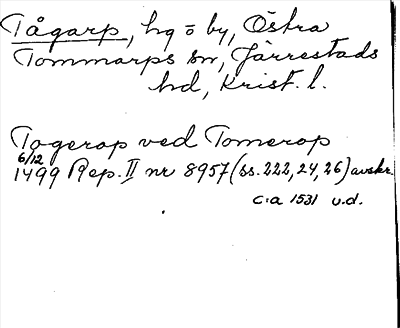 Tågarp, hg o by, Östra
Tommarps sn, Järrestads
hd, Krist. l.
Togerop ved Tomerop
6/12
1499 Rep. II nr 8957 (ss. 222, 24, 26) avskr.
c:a 1531 u.d.